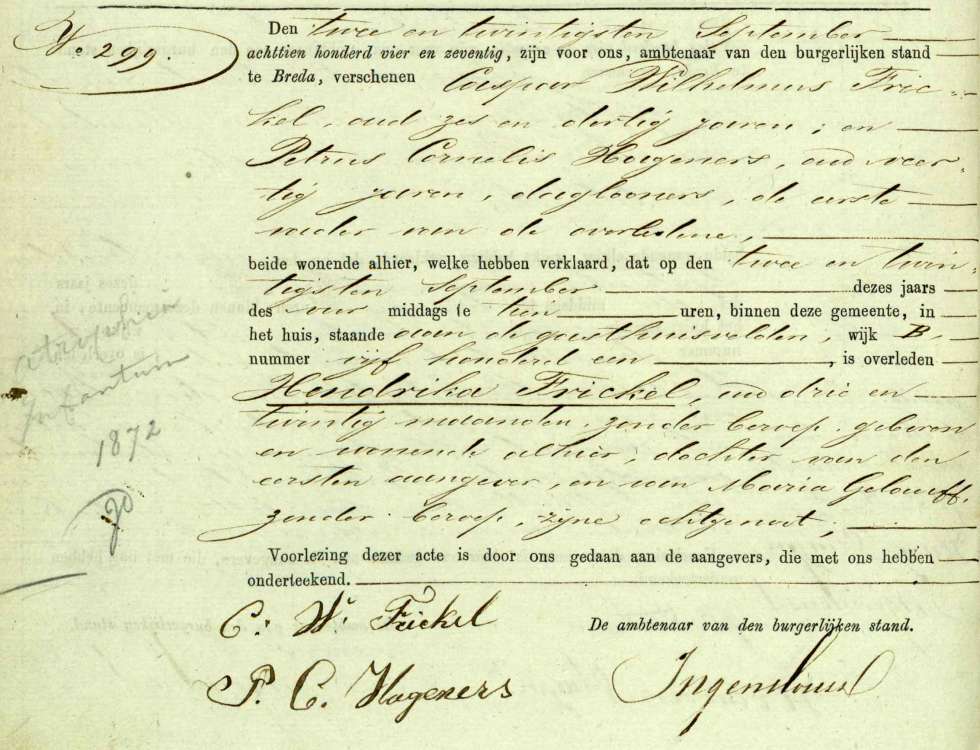 No 299.
Den twee en twintigsten September
achttien honderd vier en zeventig, zijn voor ons, ambtenaar van den burgerlijken stand
te Breda, verschenen Caspar Wilhelmus Fric-
kel, oud zes en dertig jaren; en
Petrus Cornelis Hageners, oud veer-
tig jaren, daglooners, de eerste
vader van de overledene,
beide wonende alhier, welke hebben verklaard, dat op den twee en twin-
tigsten September dezes jaars
des voor middags te tien uren, binnen deze gemeente, in
het huis, staande aan de gasthuisvelden, wijk B.
nummer vijf honderd een, is overleden
Hendrika Frickel, oud drie en
twintig maanden, zonder beroep, geboren
en wonende alhier, dochter van den
eersten aangever, en van Maria Gelauff,
zonder beroep, zijne echtgenoot,
1872
Voorlezing dezer acte is door ons gedaan aan de aangevers, die met ons hebben
onderteekend.
C. W. Frickel
De ambtenaar van den burgerlijken stand.
P. C. Hageners